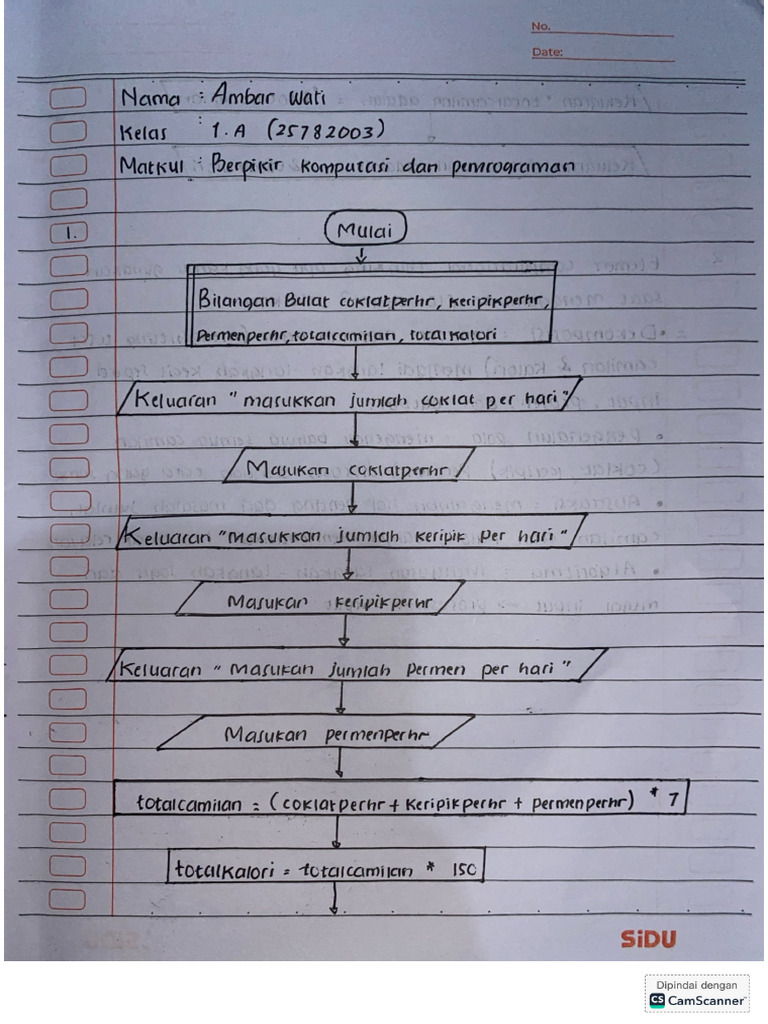 No.
Date:
Nama : Ambar Wati
Kelas : 1.A (25782003)
Matkul : Berpikir komputasi dan pemrograman
1.
Mulai
Bilangan Bulat coklatperhr, keripikperhr,
Permenperhr, totalcamilan, totalkalori
Keluaran "masukkan jumlah coklat per hari"
Masukan coklatperhr
Keluaran "Masukkan jumlah keripik Per hari"
Masukan keripikperhr
Keluaran "Masukan jumlah Permen per hari"
Masukan permenperhr
totalcamilan = (coklatperhr + keripikperhr + permenperhr) * 7
totalkalori = totalcamilan * 150
SiDU
Dipindai dengan
CS CamScanner